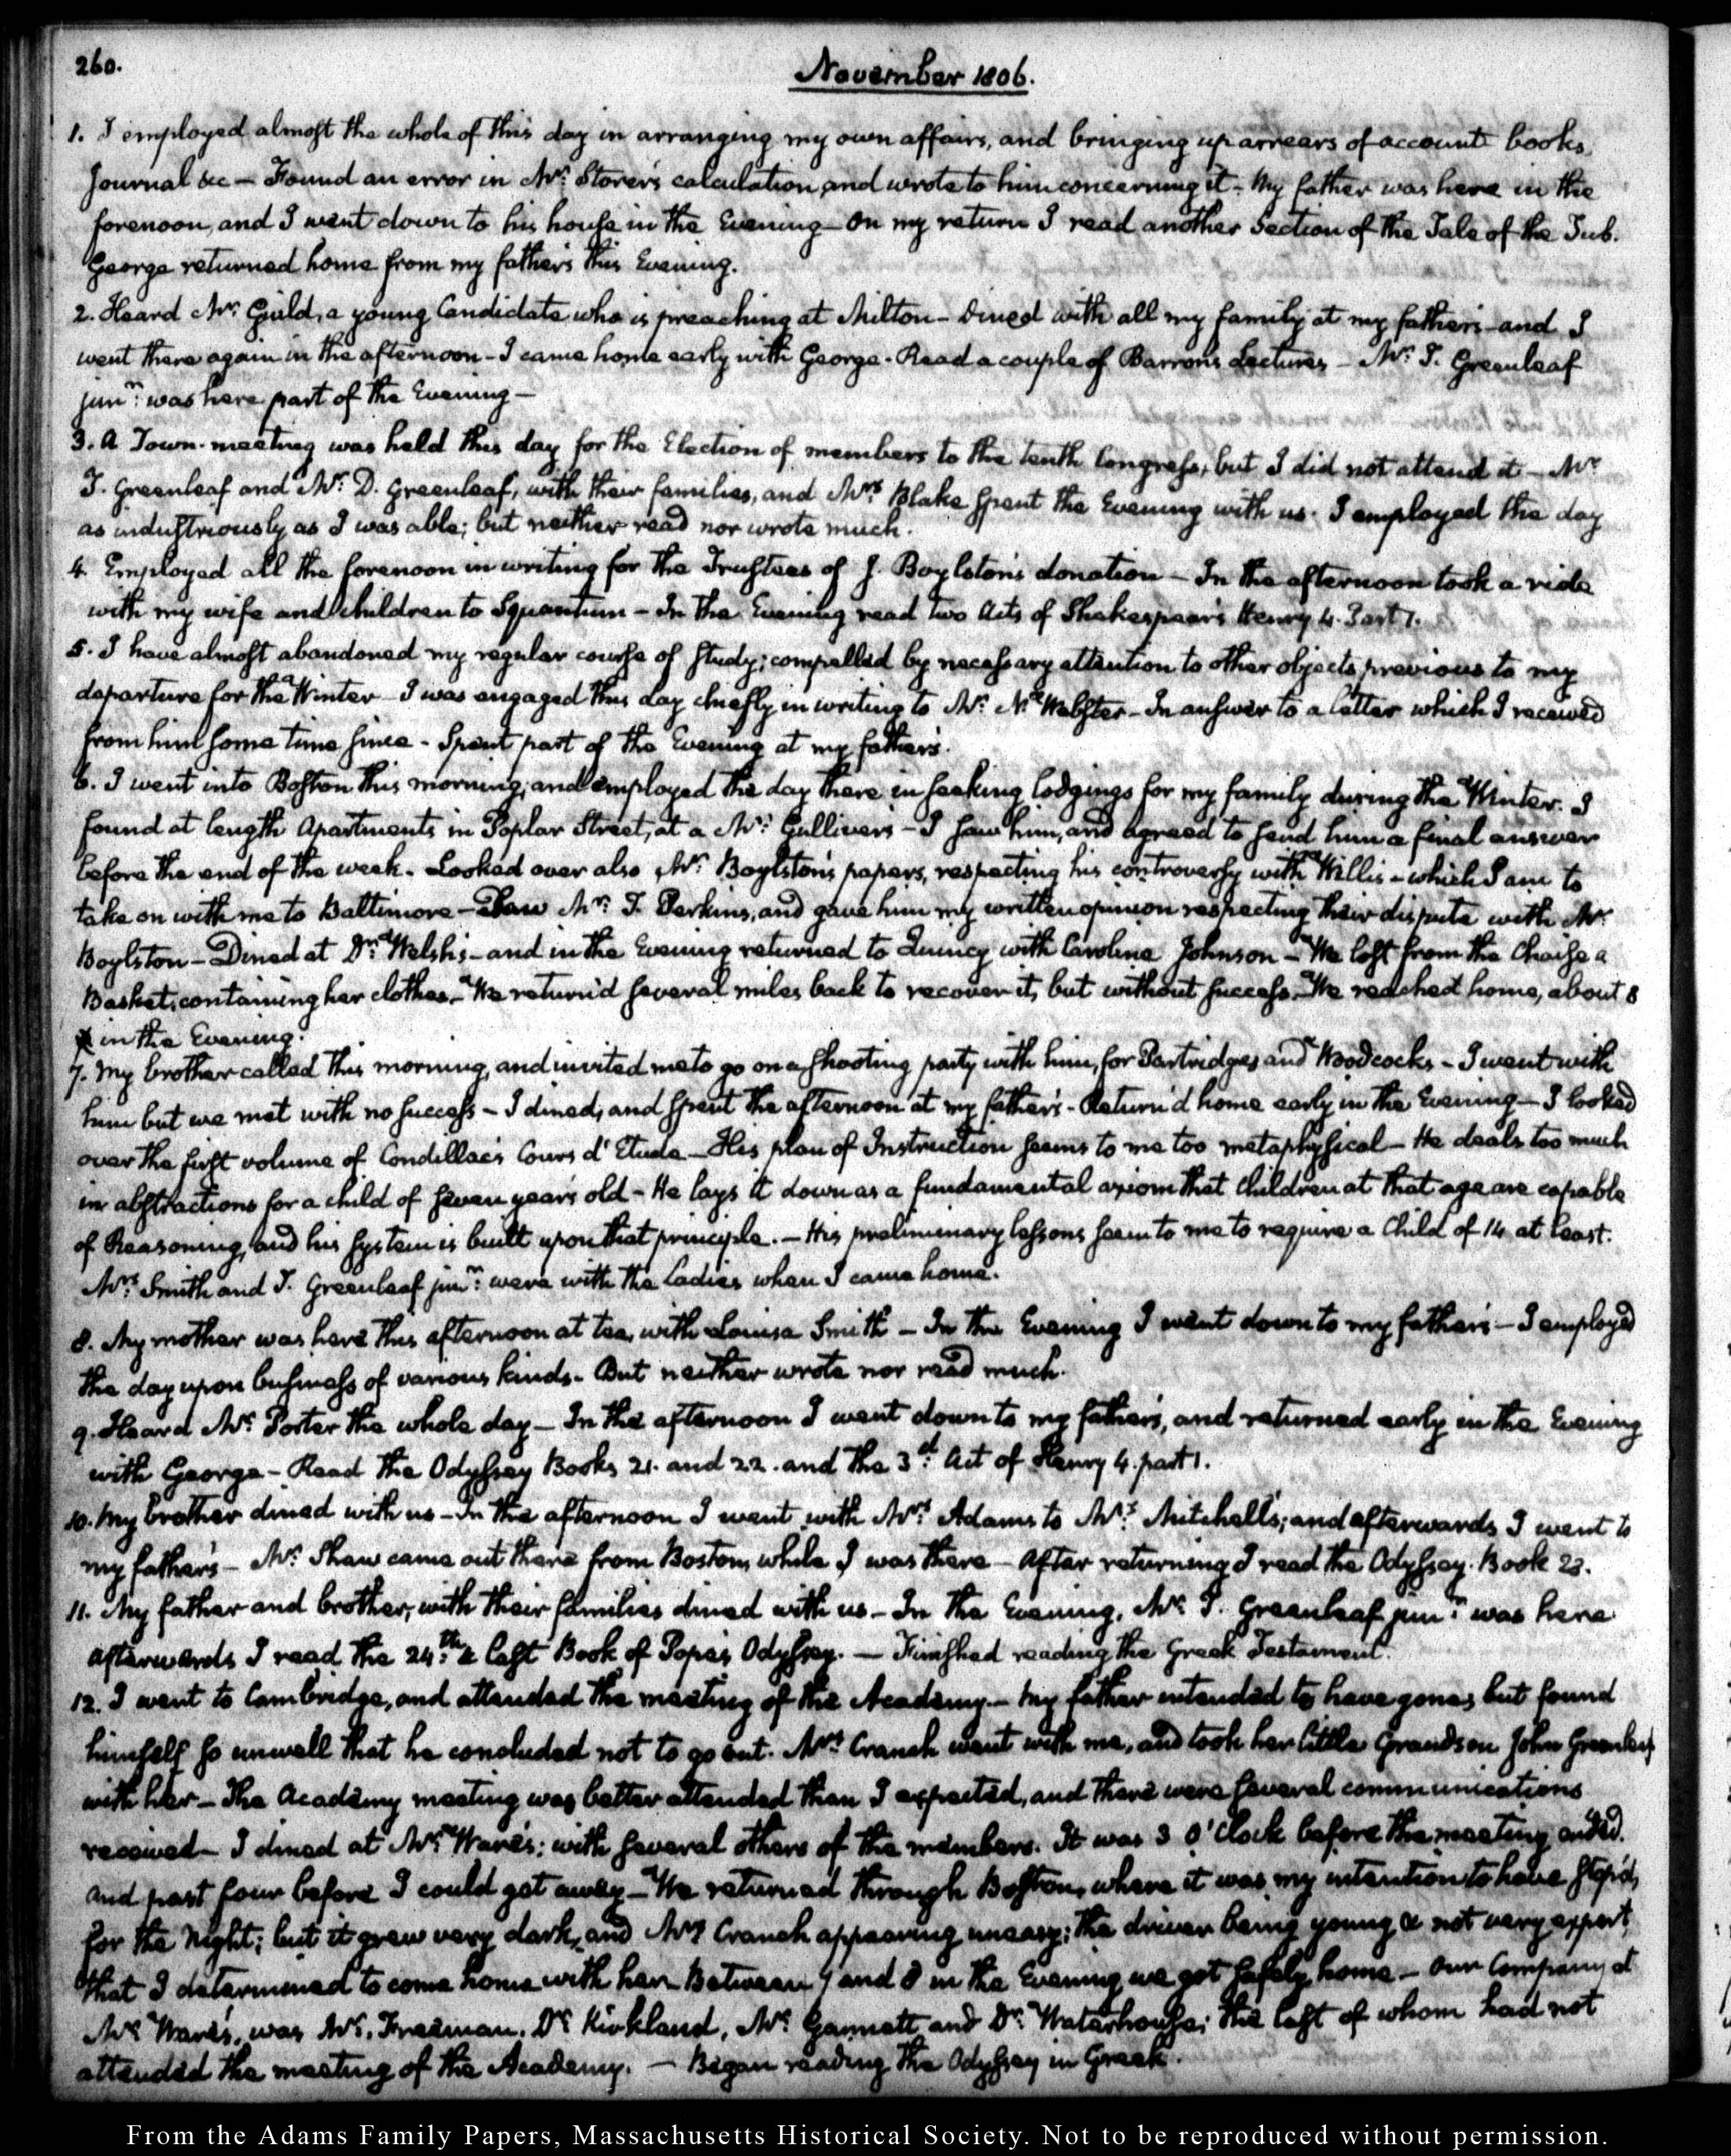 260.
November 1806.
1. I employed almost the whole of this day in arranging my own affairs, and bringing up arrears of account books,
Journal &c — Found an error in Mr: Storer's calculation, and wrote to him concerning it — My father was here in the
forenoon, and I went down to his house in the Evening — On my return I read another Section of the Tale of the Tub.
George returned home from my father's this Evening.
2. Heard Mr: Guild, a young Candidate who is preaching at Milton — Dined with all my family at my father's — and I
went there again in the afternoon — I came home early with George. Read a couple of Barron's Lectures — Mr: T. Greenleaf
junr: was here part of the Evening —
3. A Town-meeting was held this day for the Election of members to the tenth Congress, but I did not attend it — Mr
T. Greenleaf and Mr: D. Greenleaf, with their families, and Mrs: Blake spent the Evening with us. I employed the day
as industriously as I was able; but neither read nor wrote much.
4. Employed all the forenoon in writing for the Trustees of J. Boylston's donation — In the afternoon took a ride
with my wife and children to Squantum — In the Evening read two Acts of Shakespear's Henry 4. Part 1.
5. I have almost abandoned my regular course of study; compelled by necessary attention to other objects previous to my
departure for the Winter — I was engaged this day chiefly in writing to Mr: N. Webster — In answer to a letter which I received
from him some time since — Spent part of the Evening at my father's.
6. I went into Boston this morning, and employed the day there in seeking lodgings for my family during the Winter. I
found at length Apartments in Poplar Street, at a Mr: Gulliver's — I saw him, and agreed to send him a final answer
before the end of the week. Looked over also Mr: Boylston's papers, respecting his controversy with Willis — which I am to
take on with me to Baltimore — Saw Mr: T. Perkins, and gave him my written opinion respecting their dispute with Mr:
Boylston — Dined at Dr: Welsh's — and in the Evening returned to Quincy with Caroline Johnson — We lost from the Chaise a
Basket, containing her clothes — We return'd several miles back to recover it, but without success. We reached home, about 8
in the Evening.
7. My brother called this morning, and invited me to go on a shooting party with him, for Partridges and Woodcocks — I went with
him but we met with no success — I dined, and spent the afternoon at my father's — Return'd home early in the Evening — I looked
over the first volume of Condillac's Cours d'Etude — His plan of Instruction seems to me too metaphysical — He deals too much
in abstractions for a child of seven years old — He lays it down as a fundamental axiom that children at that age are capable
of Reasoning, and his system is built upon that principle. — His preliminary lessons seem to me to require a Child of 14 at least.
Mrs: Smith and T. Greenleaf junr: were with the Ladies when I came home.
8. My mother was here this afternoon at tea, with Louisa Smith — In the Evening I went down to my father's — I employed
the day upon business of various kinds — But neither wrote nor read much.
9. Heard Mr: Porter the whole day — In the afternoon I went down to my father's, and returned early in the Evening
with George — Read the Odyssey Books 21. and 22. and the 3d: Act of Henry 4. part 1.
10. My brother dined with us — In the afternoon I went with Mrs: Adams to Mrs: Mitchell's; and afterwards I went to
my father's — Mr: Shaw came out there from Boston, while I was there — After returning I read the Odyssey. Book 23.
11. My father and brother, with their families dined with us — In the Evening, Mr: T. Greenleaf junr: was here
afterwards I read the 24th: & last Book of Pope's Odyssey. — Finished reading the Greek Testament.
12. I went to Cambridge, and attended the meeting of the Academy — My father intended to have gone, but found
himself so unwell that he concluded not to go out. Mrs: Cranch went with me, and took her little Grandson John Greenleaf
with her — The Academy meeting was better attended than I expected, and there were several communications
received — I dined at Mr: Ware's; with several others of the members. It was 3 O'Clock before the meeting ended,
and past four before I could get away — We returned through Boston, where it was my intention to have stop'd,
for the Night; but it grew very dark, and Mrs: Cranch appearing uneasy; the driver being young & not very expert,
that I determined to come home with her. Between 7 and 8 in the Evening we got safely home — Our Company at
Mr: Ware's, was Mr. Freeman, Dr: Kirkland, Mr: Gannett and Dr: Waterhouse; the last of whom had not
attended the meeting of the Academy. — Began reading the Odyssey in Greek.
From the Adams Family Papers, Massachusetts Historical Society. Not to be reproduced without permission.